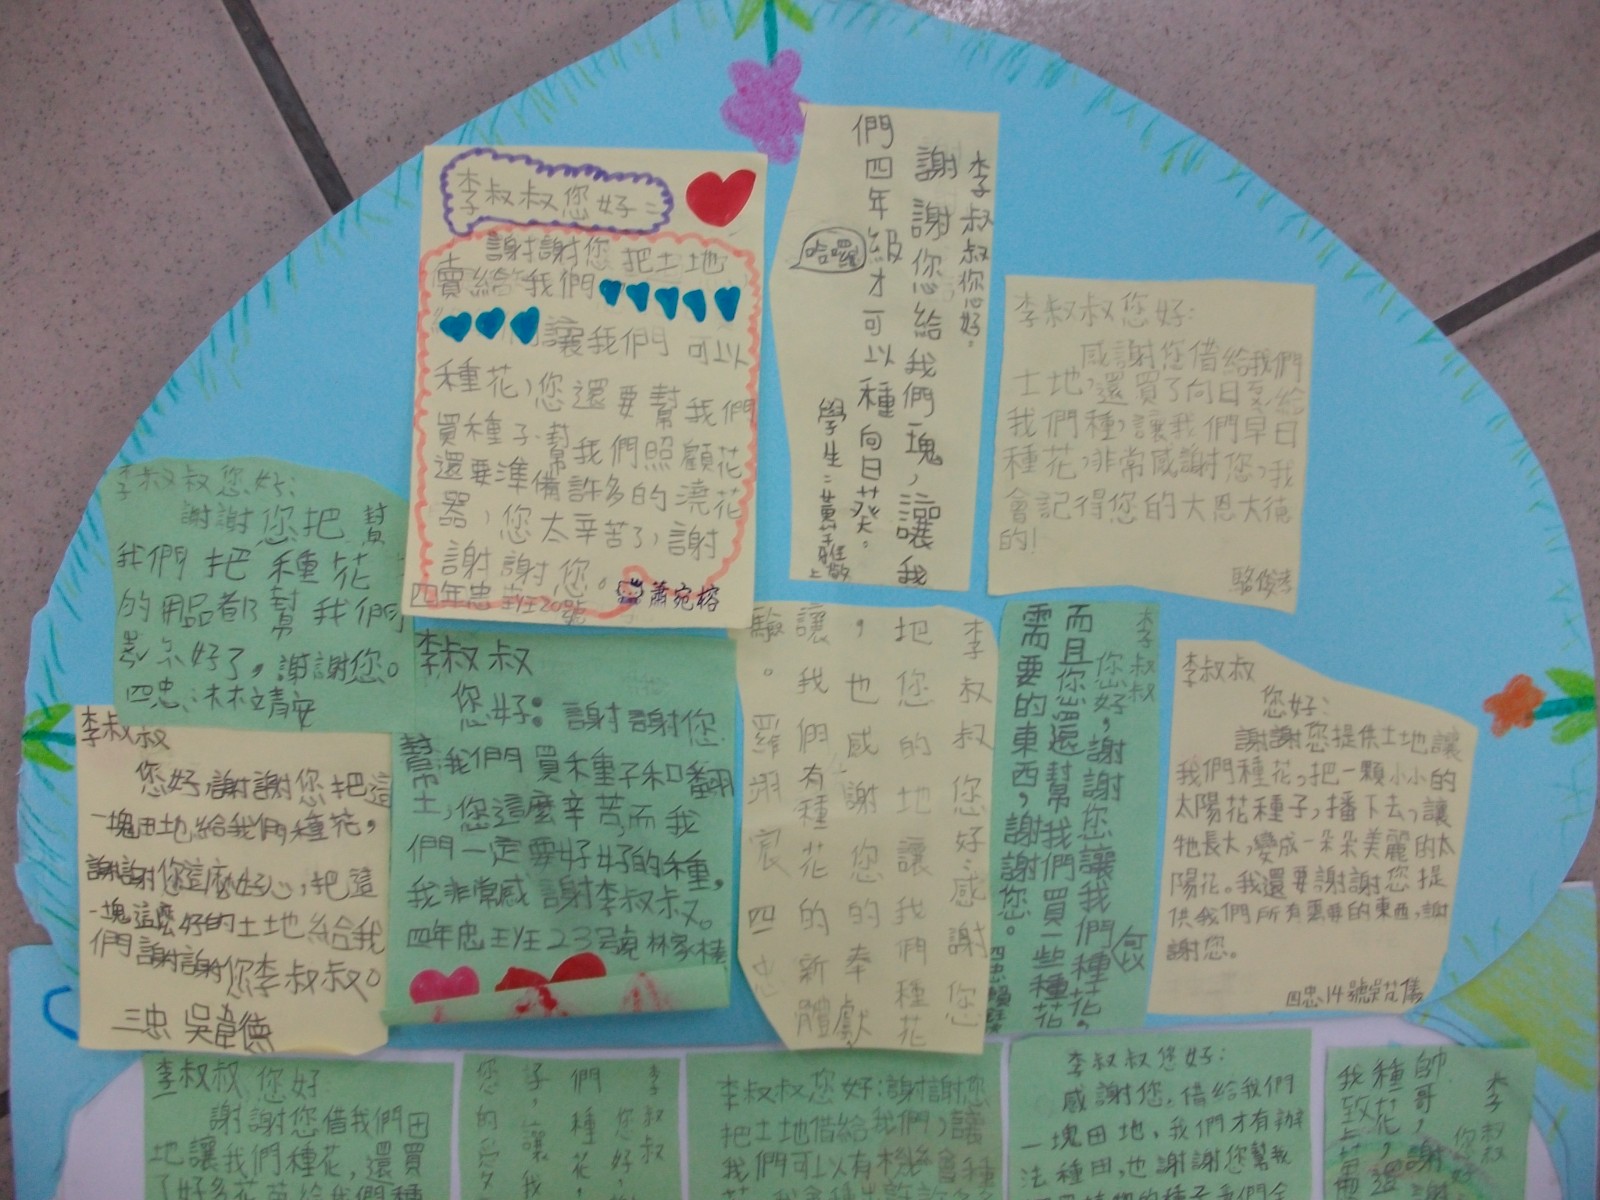 李叔叔您好:
謝謝您把土地
賣給我們
讓我們可以
種花,您還要幫我們
買種子.幫我們照顧花
還要準備許多的澆花
器,您太辛苦了,謝
謝謝您。
四年忠班20號
蕭宛榕
李叔叔你您好。
謝謝您給我們塊,讓我
們四年級才可以種向日葵。
哈囉
學生:
上
李叔叔您好:
感謝您借給我們
土地,還買了向日葵給
我們種,讓我們早日
種花,非常感謝您,我
會記得您的大恩大德
的!
李叔叔您好:
謝謝您把 幫
我們把種花
的用品都幫我們
好了,謝謝您。
李叔叔
您好:謝謝您
幫我們買種子和翻
土,您這麼辛苦,而我
們一定要好好的種,
我非常感謝李叔叔。
四年忠班23號林家
李叔叔
您好,謝謝您把這
一塊田地給我們種花,
謝謝你這麼好心,把這
一塊這麼好的土地給我
們謝謝你李叔叔。
三忠 吳韋德
李叔叔您好感謝您
把您的地讓我們種花
,也感謝您的奉獻
讓我們有種花的新體
驗。羅翊宸四忠
李叔叔
您好,謝謝您讓我們種花,
而且您還幫我們買一些種花
需要的東西,謝謝您。
李叔叔
您好:
謝謝您提供土地讓
我們種花,把一顆小小的
太陽花種子,播下去,讓
牠長大,變成一朵朵美麗的太
陽花。我還要謝謝您提
供我們所有需要的東西,謝
謝您。
四忠14號
李叔叔,您好
謝謝您借我們田
地讓我們種花,還買
李叔叔
您好,
們種花,
子,讓我
您的愛
李叔叔您好:謝謝您
把土地借給我們,讓
我們可以有機會種
李叔叔您好:
感謝您,借給我們
一塊田地,我們才有辦
法種田,也謝謝您幫我
李叔叔
您好
帥哥,謝
我種花,還